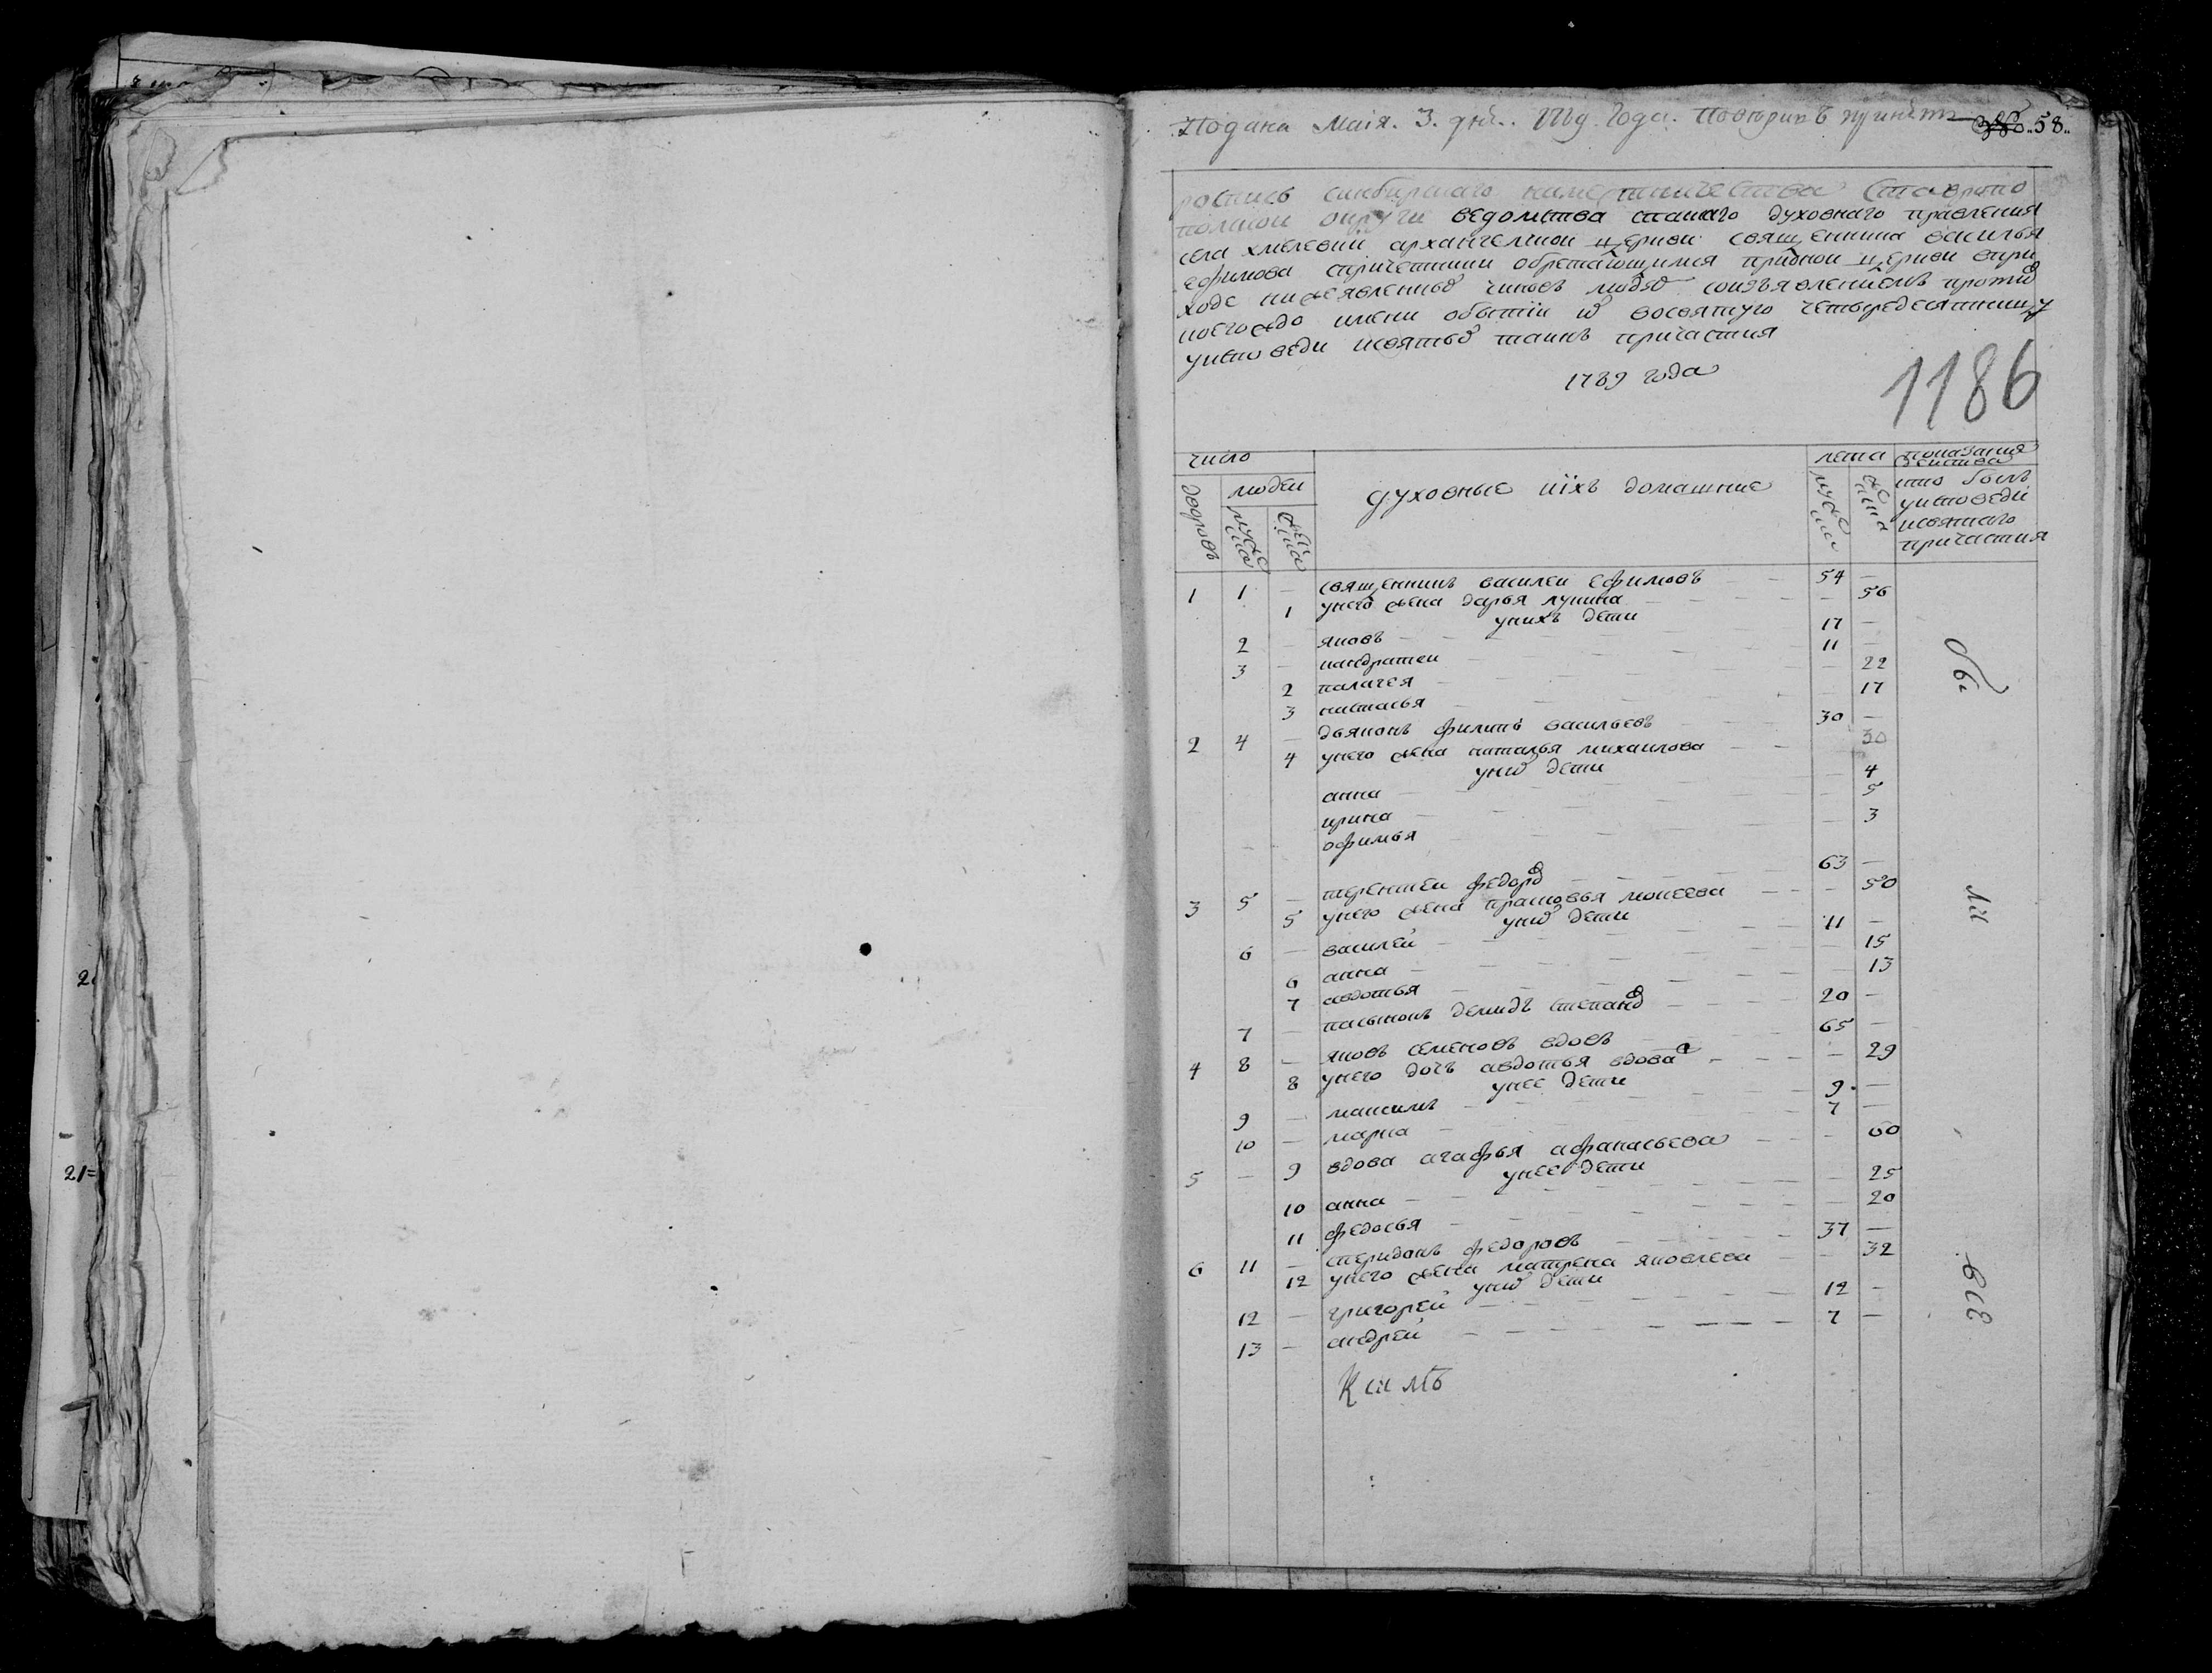 Подана Маія. 3. дня. 1789 года.
58.
роспись синбирскаго наместничества Ставропо
полской округи ведомства спаскаго духовнаго правления
села хмелевки архангелской церкви священника василья
ефимова спричетники обретающимися притой церкви впри
ходе нижеявленныхъ чиновъ людехъ соизъявлениемъ против
коегождо имени обытии ихъ восвятую четыредесятницу
уисповеди исвятыхъ таинъ причастия
1789 года
1186
число
лета
показания
действа
дворовъ
людеи
духовные иихъ домашние
мужеска
женска
кто былъ
уисповеди
исвятаго
причастия
1 1 — священникъ василеи ефимовъ — 54 —
1 унего жена дарья лукина — — 56
унихъ дети
2 — яковъ — 17 —
3 — кандратеи — 11 —
2 палагея — — 22
3 настасья — — 17
2 4 — дьяконъ филипъ васильевъ — 30 —
4 унего жена наталья михаилова — — 30
унихъ дети
анна — — 4
ирина — — 5
офимья — — 3
3 5 — терентеи федоровъ — 63 —
5 унего жена прасковья мокеева — — 50
унихъ дети
6 — василей — 11 —
6 анна — — 15
7 авдотья — — 13
7 — пасынокъ демидъ степановъ — 20 —
4 8 — яковъ семеновъ вдовъ — 65 —
8 унего дочь авдотья вдова — — 29
унее дети
9 — максимъ — 9 —
10 — марка — 7 —
5 — 9 вдова агафья афанасьева — — 60
унее дети
10 анна — — 25
11 федосья — — 20
6 11 — спиридонъ федоровъ — 37 —
12 унего жена матрена яковлева — — 32
унихъ дети
12 — григорей — 12 —
13 — андрей — 7 —
бы
ли
все
21=